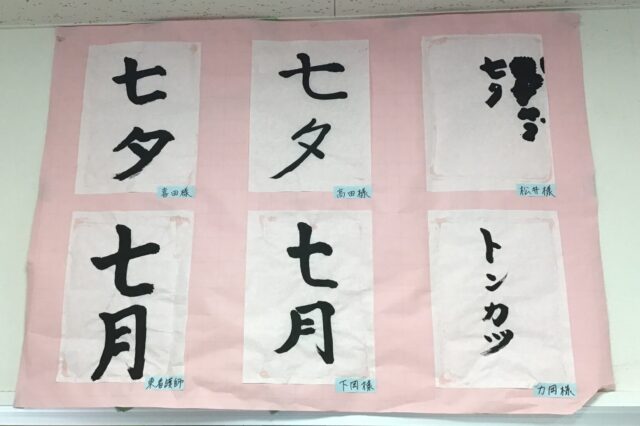 七夕
喜田様
七夕
高田様
七夕
松井様
七月
東看護師
七月
下岡様
トンカツ
力岡様